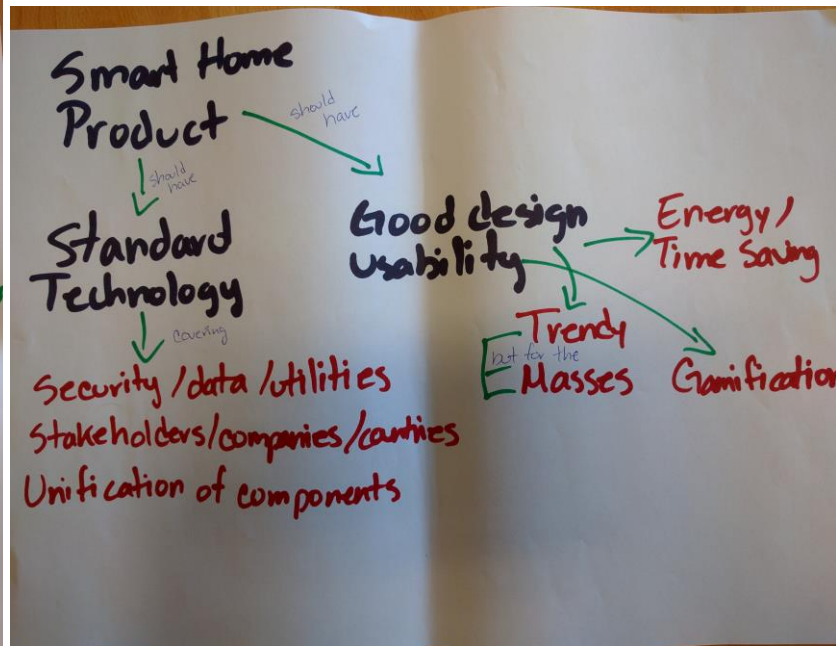 Smart Home
Product
should
have
should
have
Standard
Technology
covering
Security/data/utilities
Stakeholders/companies/countries
Unification of components
Good design
Usability
Energy/
Time Saving
Trendy
but for the
Masses
Gamification